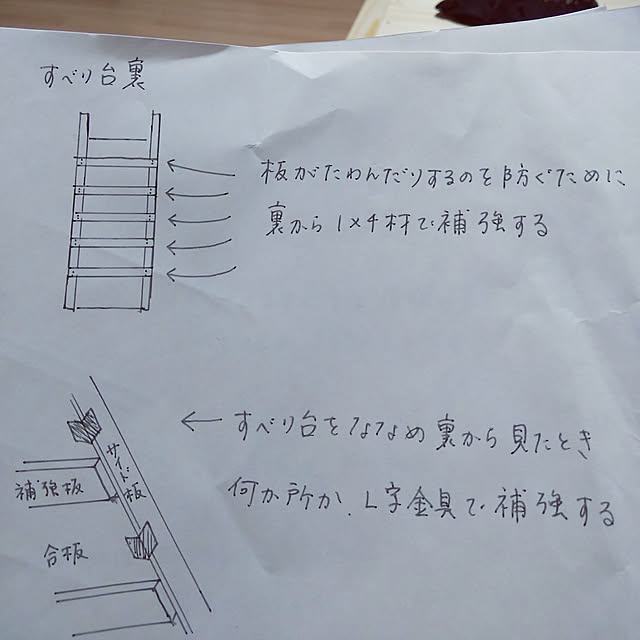 すべり台裏
板がたわんだりするのを防ぐために
裏から1×4材で補強する
すべり台をななめ裏から見たとき
何か所か、L字金具で補強する
サイド板
補強板
合板